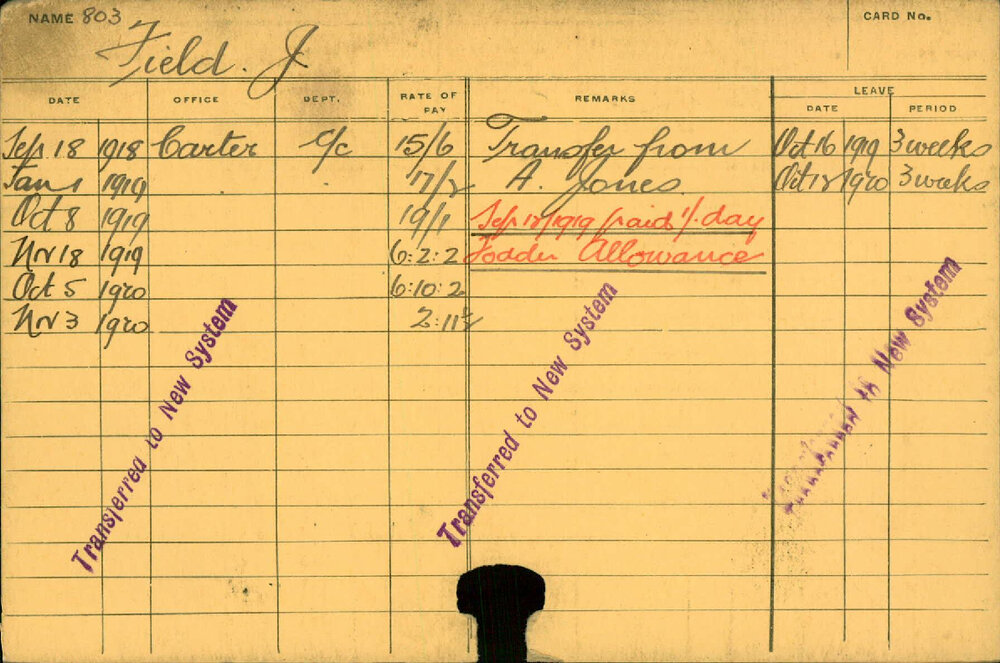 NAME 803 CARD No.
Field. J
DATE OFFICE DEPT. RATE OF PAY REMARKS LEAVE
DATE PERIOD
Sep 18 1918 Carter C/C 15/6 Transfer from Oct 16 1919 3 weeks
Jan 1 1919 17/2 A. Jones. Oct 12 1920 3 weeks
Oct 8 1919 19/1 Sep 12/1919 (paid 1/. day
Nov 18 1919 6:2:2 Fodder Allowance
Oct 5 1920 6:10:2
Nov 3 1920 2:11½
Transferred to New System
Transferred to New System
Transferred to New System